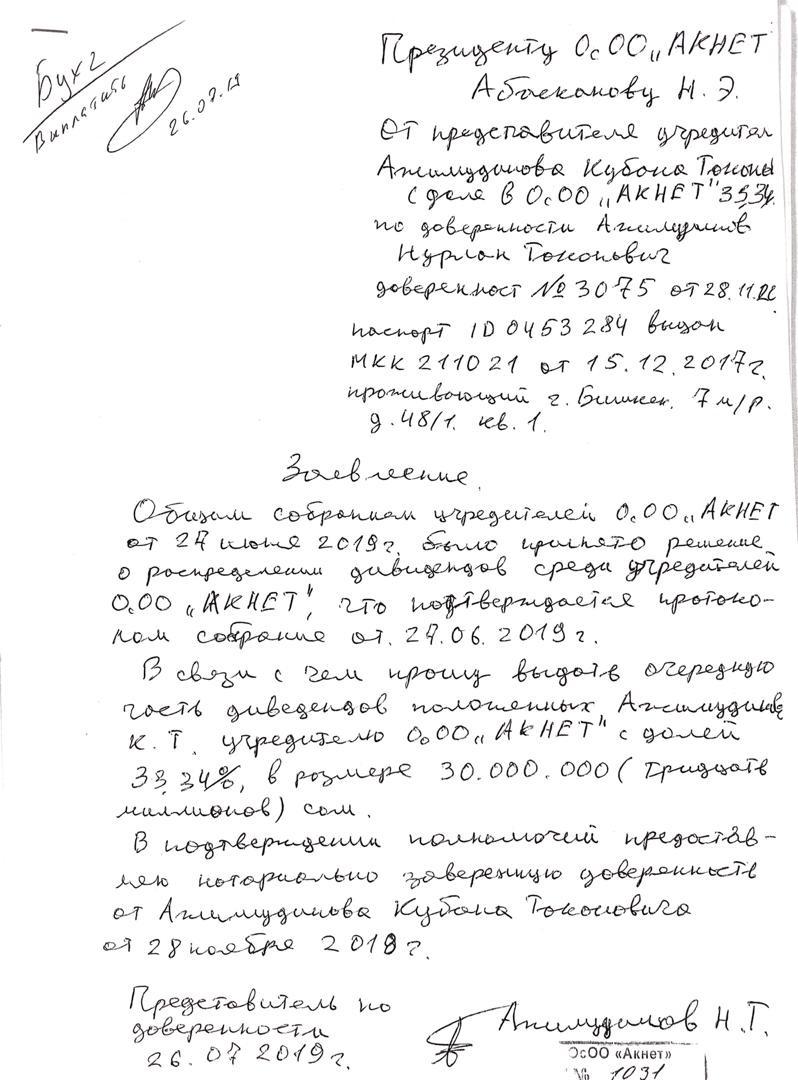 Бухг
Выплатить
26.07.19
Президенту ОсОО „АКНЕТ
Абаскановву Н. Э.
От представителя учредител
Ажимудинова Кубана Токоны
с доле в ОсОО „АКНЕТ" 33,34%
по доверенности Ажимудинов
Нурлан Токонович
доверенност № 3075 от 28.11.
паспорт ID 0453284 выдан
МКК 211021 от 15.12.2017г.
проживающий г. Бишкек. 7 м/р.
д. 48/1. кв. 1.
Заявление.
Общим собранием учредителей ОсОО „АКНЕТ
от 27 июня 2019г. было принято решение
о распределении дивидендов среди учредителей
ОсОО „АКНЕТ", что подтверждается протоко-
лом собрание от. 27.06. 2019г.
В связи с чем прошу выдать очередную
часть диведендов положенных Ажимудинову
К. Т. учредителю ОсОО „АКНЕТ" с долей
33,34%, в размере 30.000.000 (Тридцать
миллионов) сом.
В подтверждении полномочий предостав-
ляю нотариально заверенную доверенность
от Ажимудинова Кубана Токоновича
от 28 ноября 2018г.
Представитель по
доверенности
26. 07 2019г.
Ажимудинов Н.Т.
ОсОО «Акнет»
№ 1031